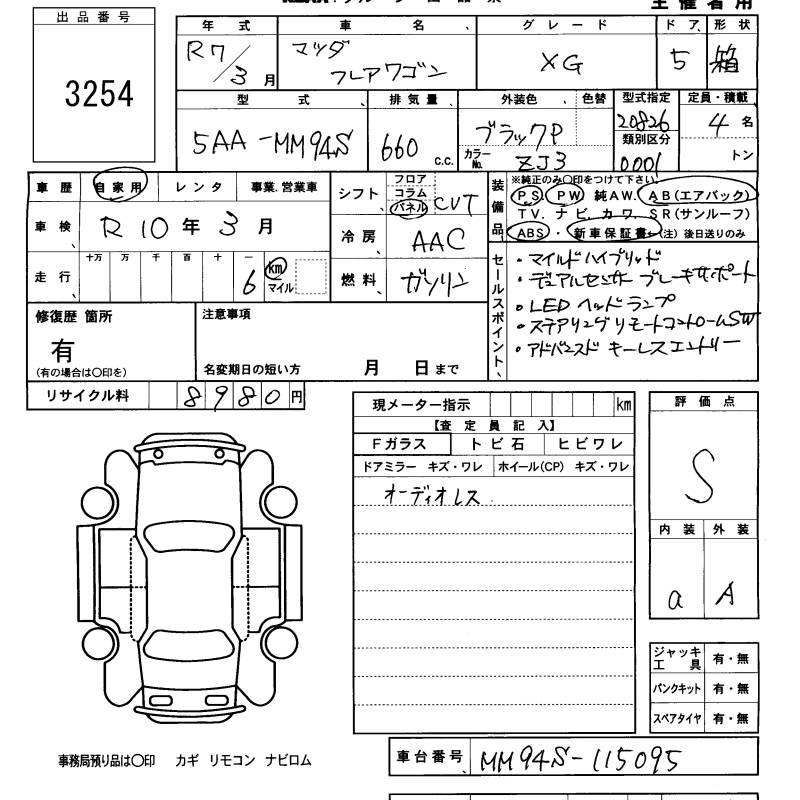 主催者用
出品番号
3254
年式 車名 グレード ドア 形状
R7/3月 マツダ フレアワゴン XG 5 箱
型式 排気量 外装色 色替 型式指定 定員・積載
5AA-MM94S 660 c.c. ブラックP 20826 4名
類別区分
カラーNo. ZJ3 0001 トン
車歴 自家用 レンタ 事業.営業車
シフト フロア コラム パネル CVT
装備品 ※純正のみ○印をつけて下さい。
PS. PW. 純AW. AB(エアバック)
TV. ナビ. カワ. SR(サンルーフ)
ABS・新車保証書←(注)後日送りのみ
車検 R10年3月
冷房 AAC
走行 十万 万 千 百 十 一
6 km マイル
燃料 ガソリン
セールスポイント
・マイルドハイブリッド
・デュアルセンサーブレーキサポート
・LEDヘッドランプ
・ステアリングリモートコントロールSW
・アドバンスドキーレスエントリー
修復歴 箇所
有
(有の場合は○印を)
注意事項
名変期日の短い方 月 日まで
リサイクル料 8980円
現メーター指示 km
【査定員記入】
Fガラス トビ石 ヒビワレ
ドアミラー キズ・ワレ ホイール(CP) キズ・ワレ
オーディオレス
評価点
S
内装 外装
a A
ジャッキ工具 有・無
パンクキット 有・無
スペアタイヤ 有・無
事務局預り品は○印 カギ リモコン ナビロム
車台番号 MM94S-115095